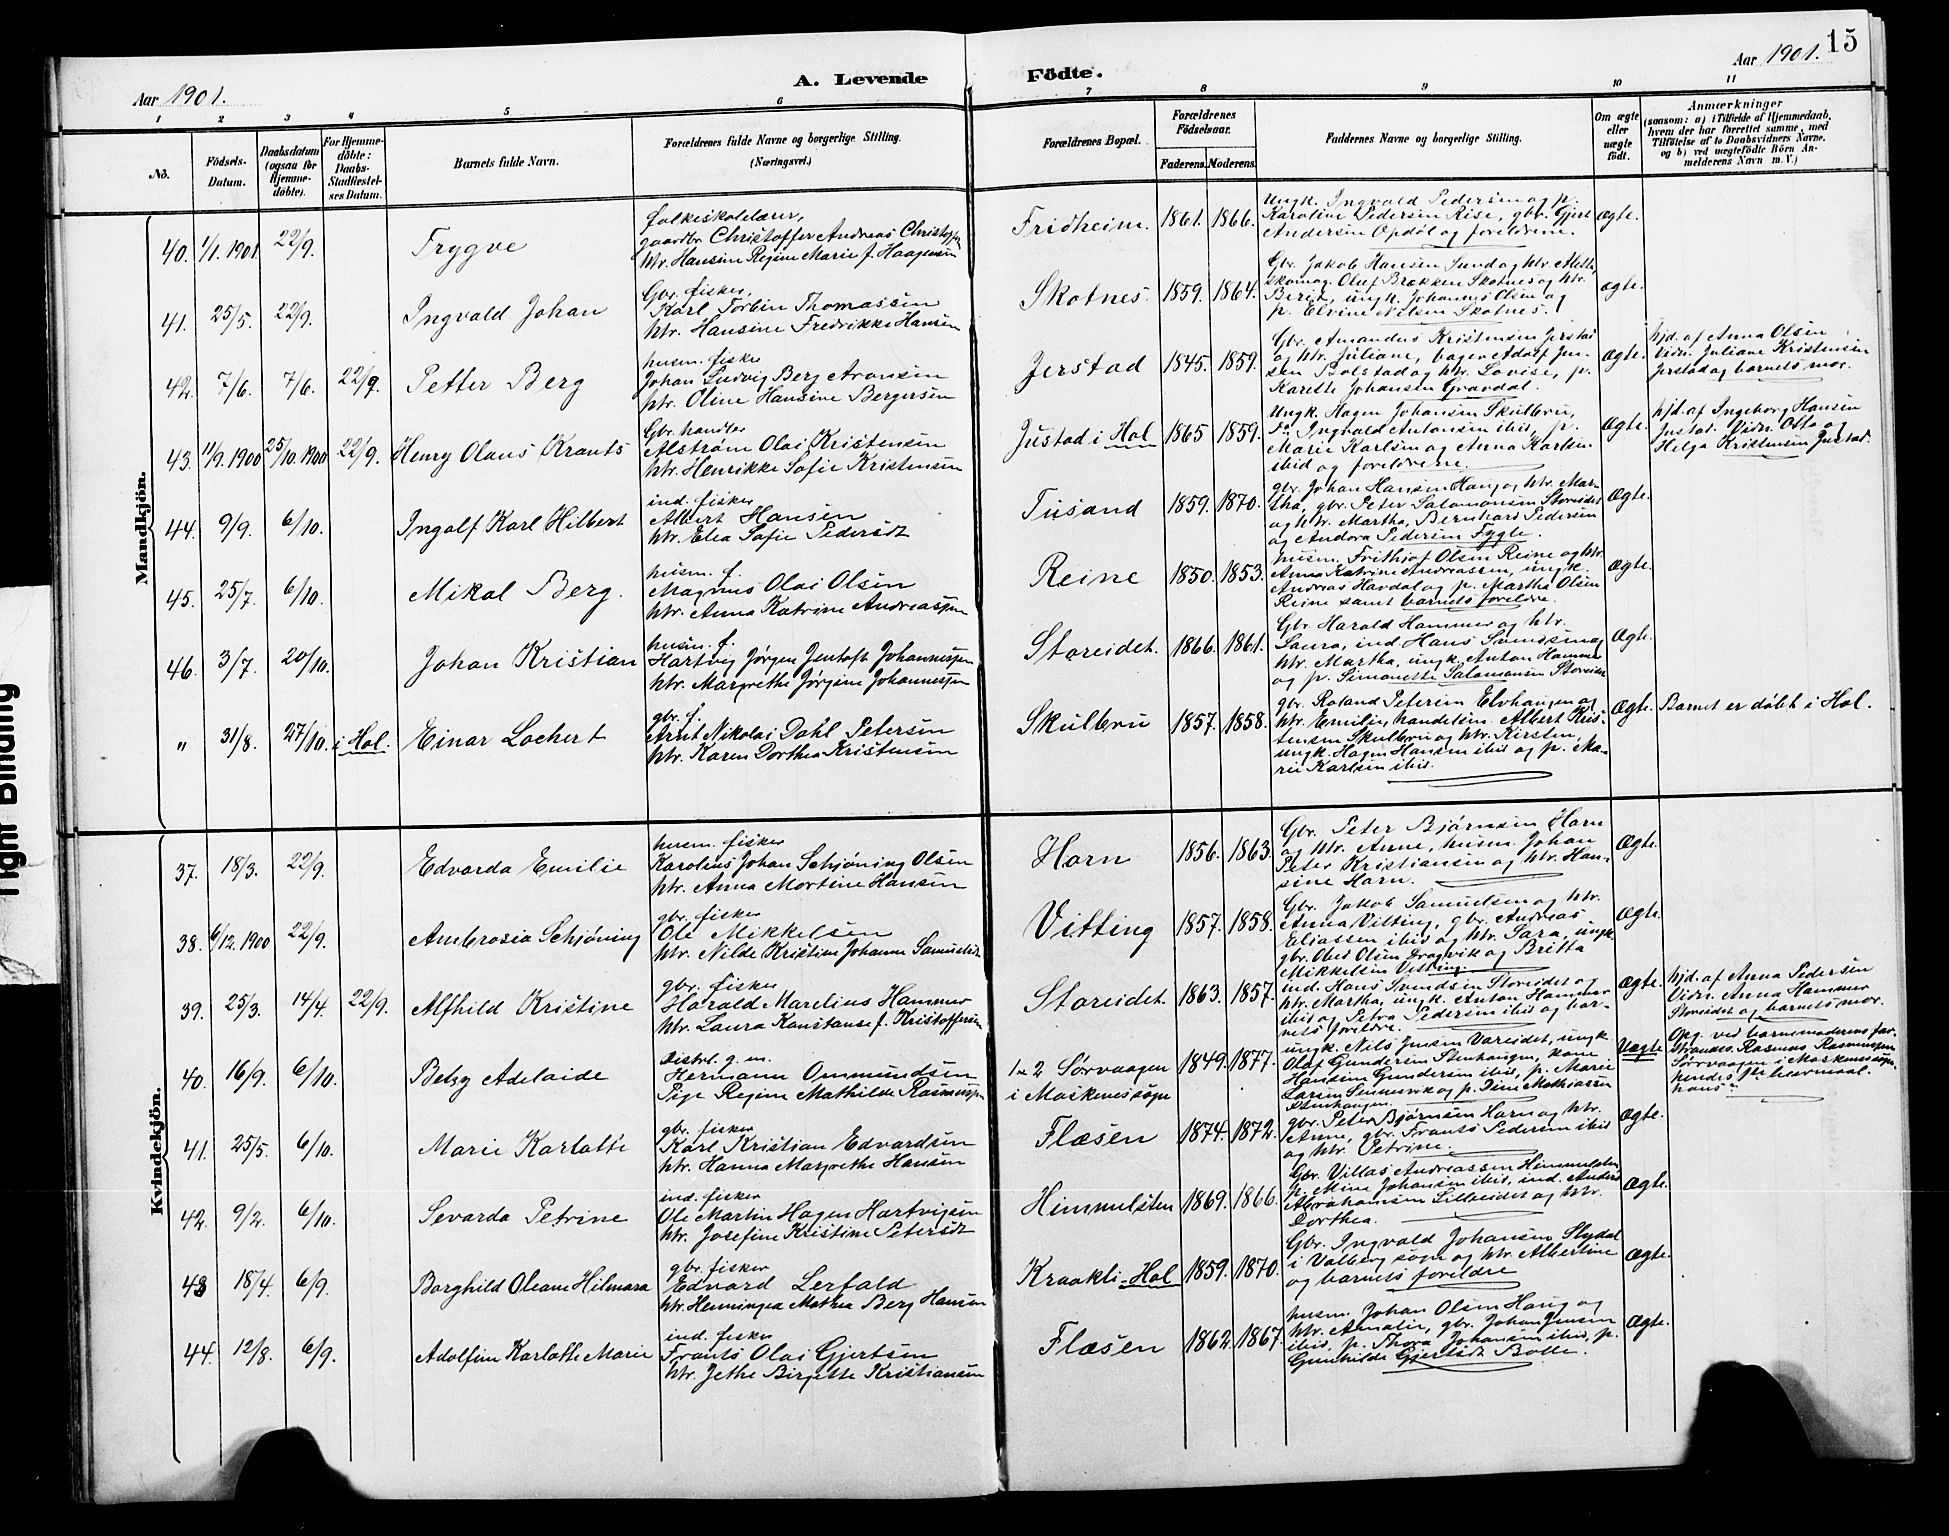 15
Aar 1901.
A. Levende Fødte.
Aar 1901.
1 2 3 4 5 6 7 8 9 10 11
No.
Fødsels-
Datum.
Daabsdatum
(ogsaa for
Hjemme-
døbte).
For Hjemme-
døbte:
Daabs-
Stadfæstel-
ses Datum.
Barnets fulde Navn.
Forældrenes fulde Navne og borgerlige Stilling.
(Næringsvei.)
Forældrenes Bopæl.
Forældrenes
Fødselsaar.
Faderens. Moderens.
Faddernes Navne og borgerlige Stilling.
Om ægte
eller
uægte
født.
Anmærkninger
(saasom: a) i Tilfælde af Hjemmedaab,
hvem der har forrettet samme, med
Tilføielse af to Daabsvidners Navne.
og b) ved uægtefødte Børn An-
melderens Navn m. V.)
Mandkjøn.
40. 1/1. 1901. 22/9. Trygve
folkeskolelærer,
gaardbr. Christoffer Andreas Christoffersen
htr. Hansine Regine Marie f. Haagensen
Fridheim. 1861. 1866.
Ungk. Ingvald Pedersen og p.
Karoline Pedersen Rise, gbr. Gjert
Andersen Opdøl og foreldrene.
Ægte.
41. 25/5. 22/9. Ingvald Johan
Gbr. fisker,
Karl Torbin Thomassen
htr. Hansine Fredrikke Hansen
Skotnes. 1859. 1864.
Gbr. Jakob Hansen Sund og htr. Alette,
skomag. Oluf Brækken Skotnes og htr.
Berit, ungk. Johannes Olsen og
p. Elvine Nilsen Skotnes.
Ægte.
42. 7/6. 7/6. 22/9. Petter Berg
husm. fisker
Johan Ludvig Berg Aronsen
htr. Oline Hansine Bergersen
Jerstad 1845. 1859.
Gbr. Amandus Kristensen Jerstad
og htr. Juliane, bager Adolf Jen-
sen Bolstad og htr. Lovise, p.
Karethe Johansen Gravdal.
Ægte.
hjd. af Anna Olsen
Vidn. Juliane Kristensen
Jerstad og barnets mor.
43. 11/9. 1900 25/10. 1900 22/9. Henry Olaus Krants
Gbr. handler
Alstrøm Olai Kristensen
htr. Henrikke Sofie Kristensen
Justad i Hol 1865 1859.
Ungk. Hagen Johansen Skulbru,
Do Ingvald Antonsen ibid, p.
Marie Karlsen og Anna Karlsen
ibid og foreldrene.
Ægte.
hjd. af Ingeborg Hansen
Justad. Vidn. Otto og
Helga Kristensen Justad.
44. 9/9. 6/10. Ingolf Karl Hilbert
ind. fisker
Albert Hansen
htr. Elea Sofie Pedersdt
Tusand 1859. 1870.
gbr. Johan Hansen Haug og htr. Mar-
tha, gbr. Peter Salamonsen Storeidet
og htr. Martha, Bernhard Pedersen
og Andora Pedersen Fygle.
Ægte.
45. 25/7. 6/10. Mikal Berg.
husm. f.
Magnus Olai Olsen
htr. Anna Katrine Andreassen
Reine 1850. 1853.
husm. Frithjof Olsen Reine og htr.
Anna Katrine Andreassen, ungk.
Andreas Havdal og p. Martha Olsen
Reine samt barnets foreldre.
Ægte.
46. 3/7. 20/10. Johan Kristian
husm. f.
Hartvig Jørgen Jentoft Johannessen
htr. Margrethe Jørgine Johannessen
Storeidet. 1866. 1861.
Gbr. Harald Hammer og htr.
Laura, ind Hans Svendsen og
htr. Martha, ungk. Anton Hammer
og p. Simonette Salamonsen Storeidet
Ægte.
" 31/8. 27/10. i Hol. Einar Lochert
gbr. f.
Arnt Nikolai Dahl Petersen
htr. Karen Dorthea Kristensen
Skulbru 1857. 1858.
gbr. Roland Petersen Elvhaugen og
htr. Emilie, handelsm. Albert Kris-
tensen Skulbru og htr. Kirsten,
ungk. Hagen Hansen ibid og p. Ma-
rie Karlsen ibid.
Ægte.
Barnet er døbt i Hol.
Kvindekjøn.
37. 18/3. 22/9. Edvarda Emilie
husm. fisker
Karolius Johan Schjøning Olsen
htr. Anna Martine Hansen
Horn 1856. 1863.
Gbr. Peter Bjørnsen Horn
og htr. Anne, husm. Johan
Peter Kristiansen og htr. Han-
sine Horn.
Ægte.
38. 6/12. 1900 22/9. Ambrosia Schjøning
gbr. fisker
Ole Mikkelsen
htr. Nilde Kristine Johanne Samuelsdt.
Vitting 1857. 1858.
Gbr. Jakob Samuelsen og htr.
Anna Vitting, gbr. Andreas
Eliassen ibid og htr. Sara, ungk.
gbr. Obed Olsen Dragvik og Britta
Mikkelsen Vitting
Ægte.
39. 25/3. 14/4. 22/9. Alfhild Kristine
gbr. fisker
Harald Marelius Hammer
htr. Laura Konstanse f. Kristoffersen
Storeidet. 1863. 1857.
ind. Hans Svendsen Storeidet og
htr. Martha, ungk. Anton Hammer
ibid og Petra Pedersen ibid og bar-
nets foreldre.
Ægte.
hjd. af Anna Pedersen
Vidn. Anna Hammer
Storeidet og barnets mor.
40. 16/9. 6/10. Betzy Adelaide
Distrl. g. m.
Hermann Ommundsen
Pige Regine Mathilde Rasmussen
1-2 Sørvaagen
i Moskenes sogn
1849. 1877.
ungk. Nils Jensen Vareidet, ungk
Olaf Gundersen Stenhaugen, kone
Hansine Gundersen ibid, p. Marie
Larsen Sennesvik og p. Dine Mathiassen
Stenhaugen.
Uægte
Opg. ved barnemoderens far
Strands. Rasmus Rasmussen
Sørvaagen i Moskenes sogn.
hendes 1ste leiermaal.
hans " "
41. 25/5. 6/10. Marie Karlotte
gbr. fisker
Karl Kristian Edvardsen
htr. Hanna Margrethe Hansen
Flæsen 1874. 1872.
gbr. Peter Bjørnsen Horn og htr.
Anne, gbr. Frants Pedersen ibid
og htr. Petrine.
Ægte.
42. 9/2. 6/10. Sevarda Petrine
ind. fisker
Ole Martin Hagen Hartvigsen
htr. Josefine Kristine Petersdt
Himmelsten 1869. 1866.
Gbr. Villas Andreassen Himmelsten,
p. Mine Johansen ibid, ind. Anders
Abrahamsen Lilleeidet og htr.
Dorthea.
Ægte.
43 18/4. 6/9. Borghild Oleane Helmara
gbr. fisker
Edvard Lerfald
htr. Henningea Mathea Berg Hansen
Kraakli - Hol 1859. 1870.
Gbr. Ingvald Johansen Slydal
i Valberg sogn og htr. Albertine
og barnets foreldre
Ægte.
44. 12/8. 6/9. Adolfine Karlotte Marie
ind. fisker
Frants Olai Gjertsen
htr. Jethe Birgitte Kristiansen
Flæsen 1862. 1867.
husm. Johan Olsen Haug og
htr. Amalie, gbr. Johan Jensen
ibid, p. Thora Johansen ibid, p.
Gunhilde Gjertsdt Bolle.
Ægte.
Tight Binding